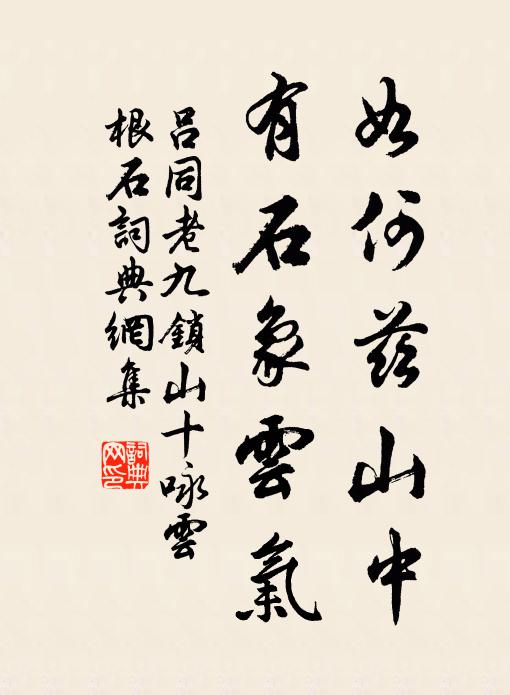 如何茲山中
有石象雲氣
呂同老九鎖山十咏雲
根石詞典網集
詞典
网印